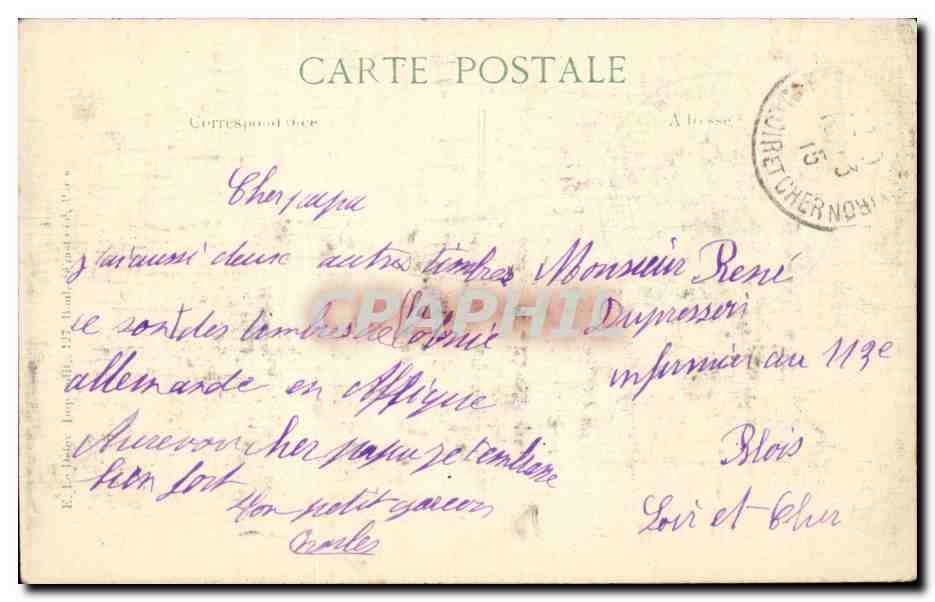 CARTE POSTALE
Correspondance
Adresse
Cher papa
j'ai aussi deux autres timbres
ce sont des timbres de Colonie
allemande en Affique
Aurevoir cher papa je t'embrasse
bien fort
Ton petit garcon
Charles
Monsieur René
Dupressoir
infirmier au 113e
Blois
Loir et Cher
LOIR ET CHER NOIR
15 3
15
CPAPHIL